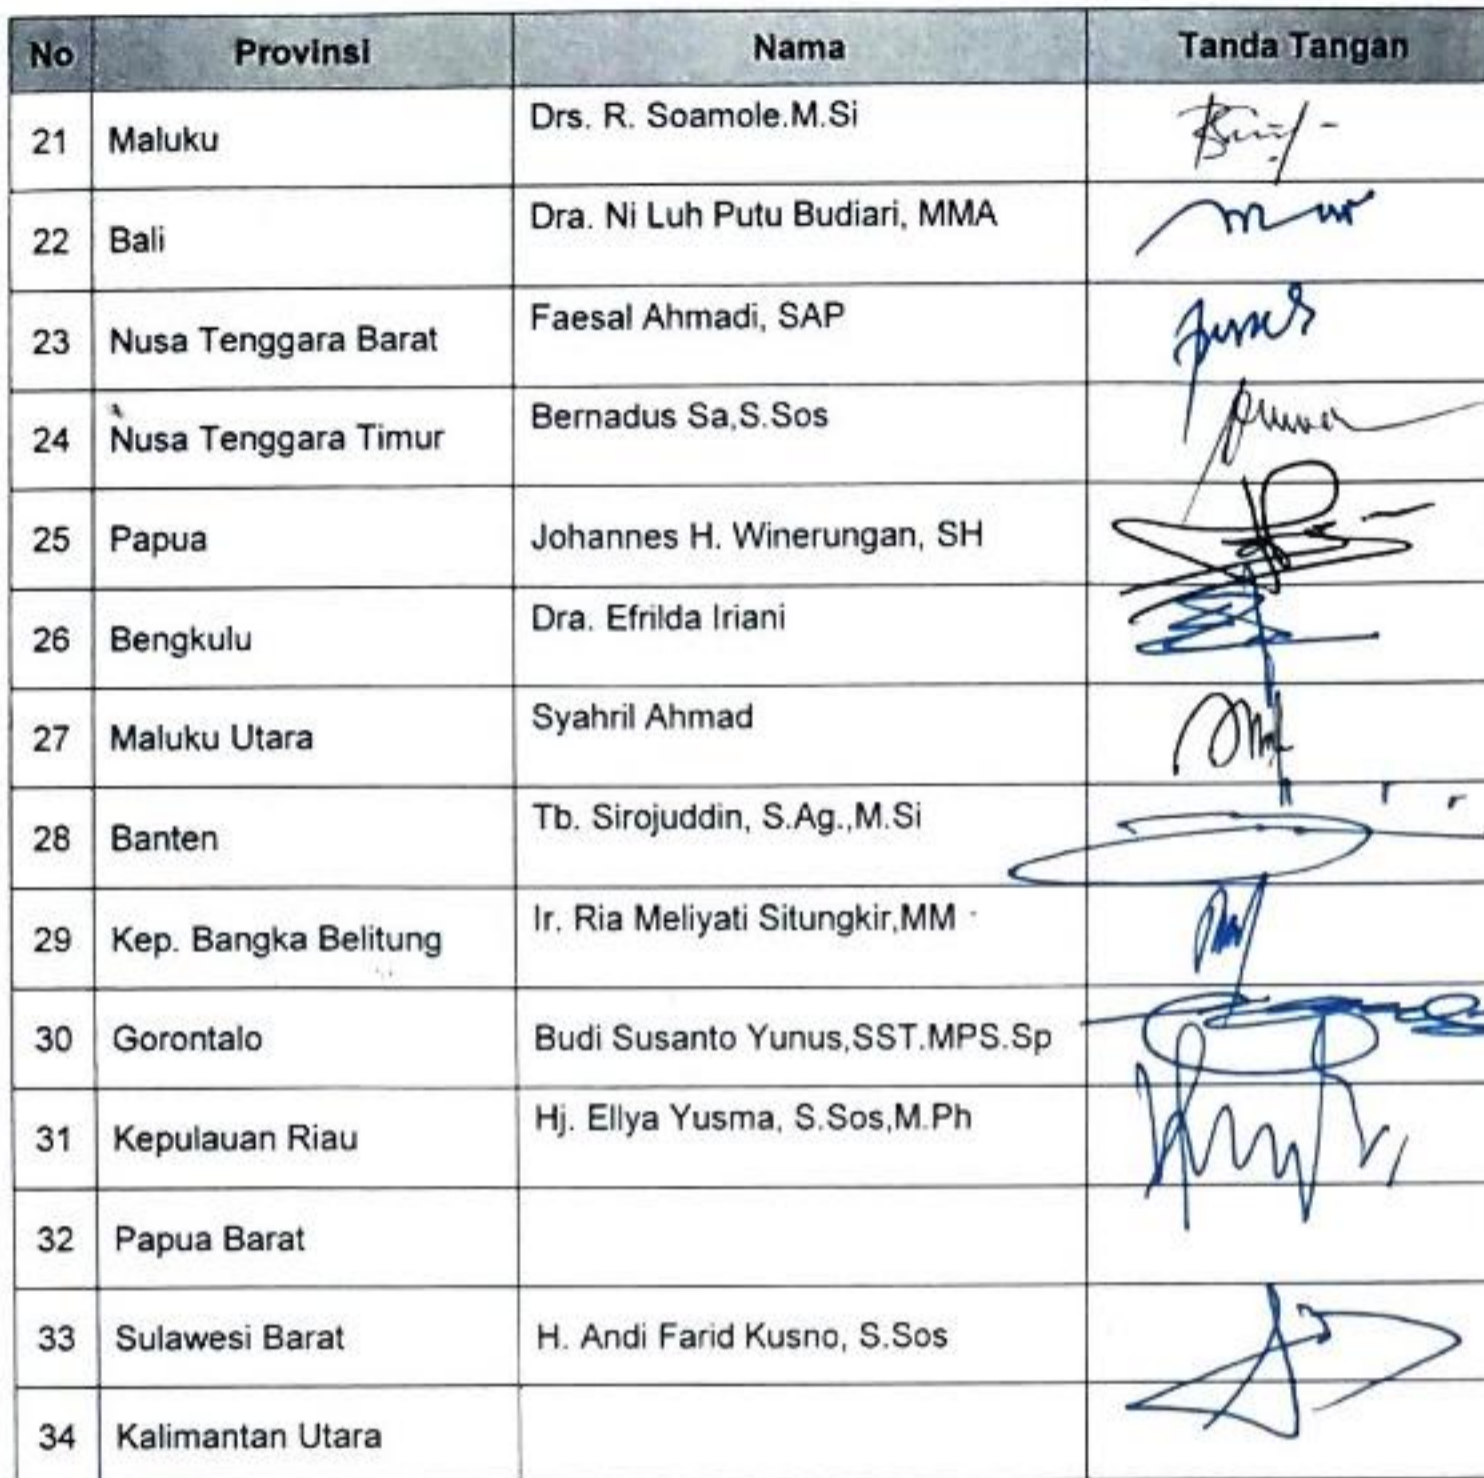 No Provinsi Nama Tanda Tangan
21 Maluku Drs. R. Soamole.M.Si
22 Bali Dra. Ni Luh Putu Budiari, MMA
23 Nusa Tenggara Barat Faesal Ahmadi, SAP
24 Nusa Tenggara Timur Bernadus Sa,S.Sos
25 Papua Johannes H. Winerungan, SH
26 Bengkulu Dra. Efrilda Iriani
27 Maluku Utara Syahril Ahmad
28 Banten Tb. Sirojuddin, S.Ag.,M.Si
29 Kep. Bangka Belitung Ir. Ria Meliyati Situngkir,MM
30 Gorontalo Budi Susanto Yunus,SST.MPS.Sp
31 Kepulauan Riau Hj. Ellya Yusma, S.Sos,M.Ph
32 Papua Barat
33 Sulawesi Barat H. Andi Farid Kusno, S.Sos
34 Kalimantan Utara